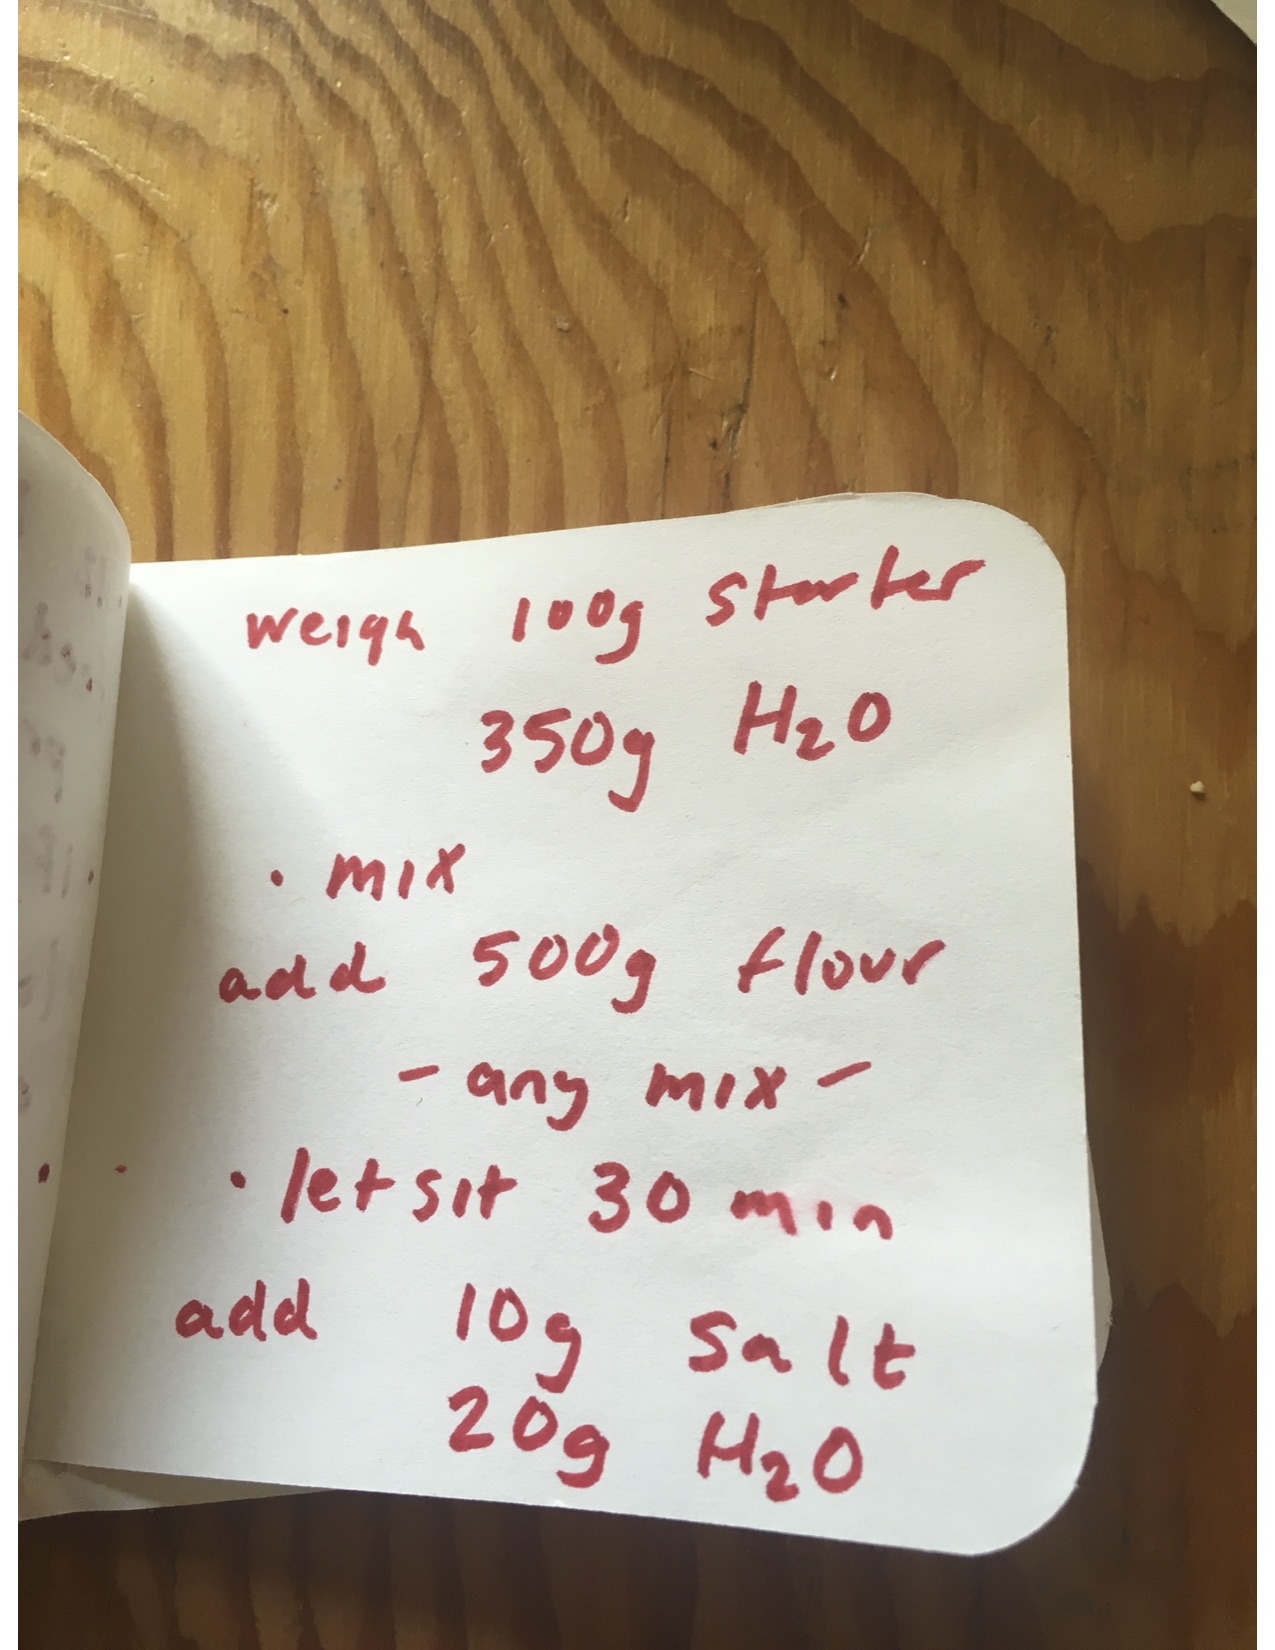 weigh 100g starter
350g H2O
· mix
add 500g flour
- any mix -
· let sit 30 min
add 10g salt
20g H2O